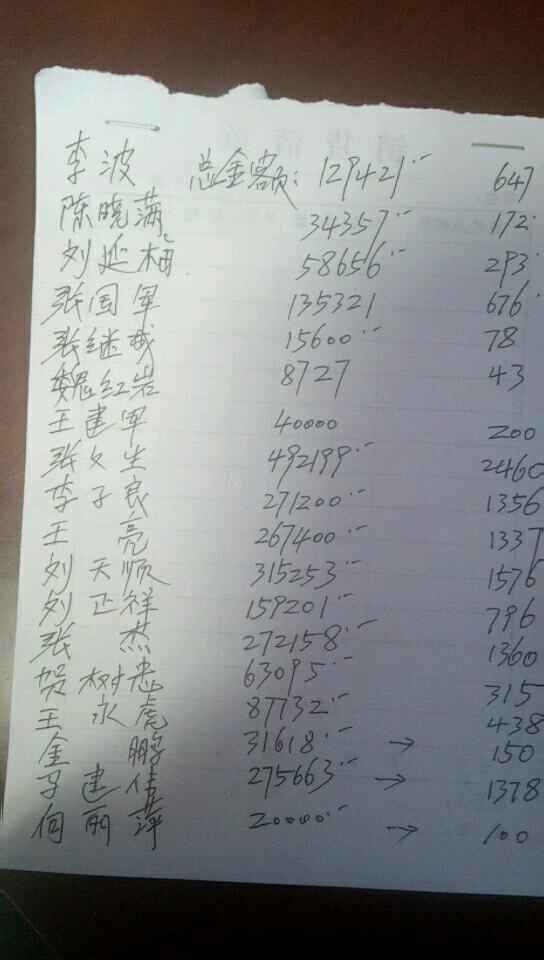 李波 总金额: 129421 647
陈晓满 34357 172
刘延梅 58656 293
张国军 135321 676
张继成 15600 78
魏红岩 8727 43
王建军 40000 200
张文生 492199 2460
李子良 271200 1356
王亮 267400 1337
刘天顺 315253 1576
刘正祥 159201 796
张杰 272158 1360
贺树忠 63095 315
王永虎 87732 438
金鹏 31618 → 150
建 275663 → 1378
何丽萍 20000 → 100